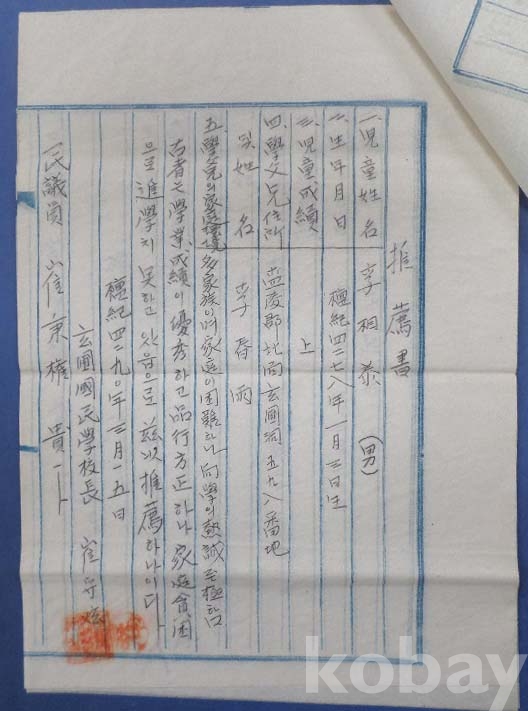 推薦書
一. 兒童姓名 李相泰 (男)
二. 生年月日 檀紀四二七八年一月三日生
三. 兒童成績 上
四. 學父兄住所 欝陵郡北面玄圃洞五九八番地
및 姓名 李春雨
五. 學父兄의 家庭環境 多家族이며 家庭이 困難하나 向學의 熱誠 至極함
右者는 學業成績이 優秀하고 品行方正하나 家庭貧困
으로 進學치 못하고 있음으로 玆以推薦하나이다
檀紀四二九〇年三月一五日
玄圃國民學校長 崔守
民議員 崔秉權 貴下
kobay